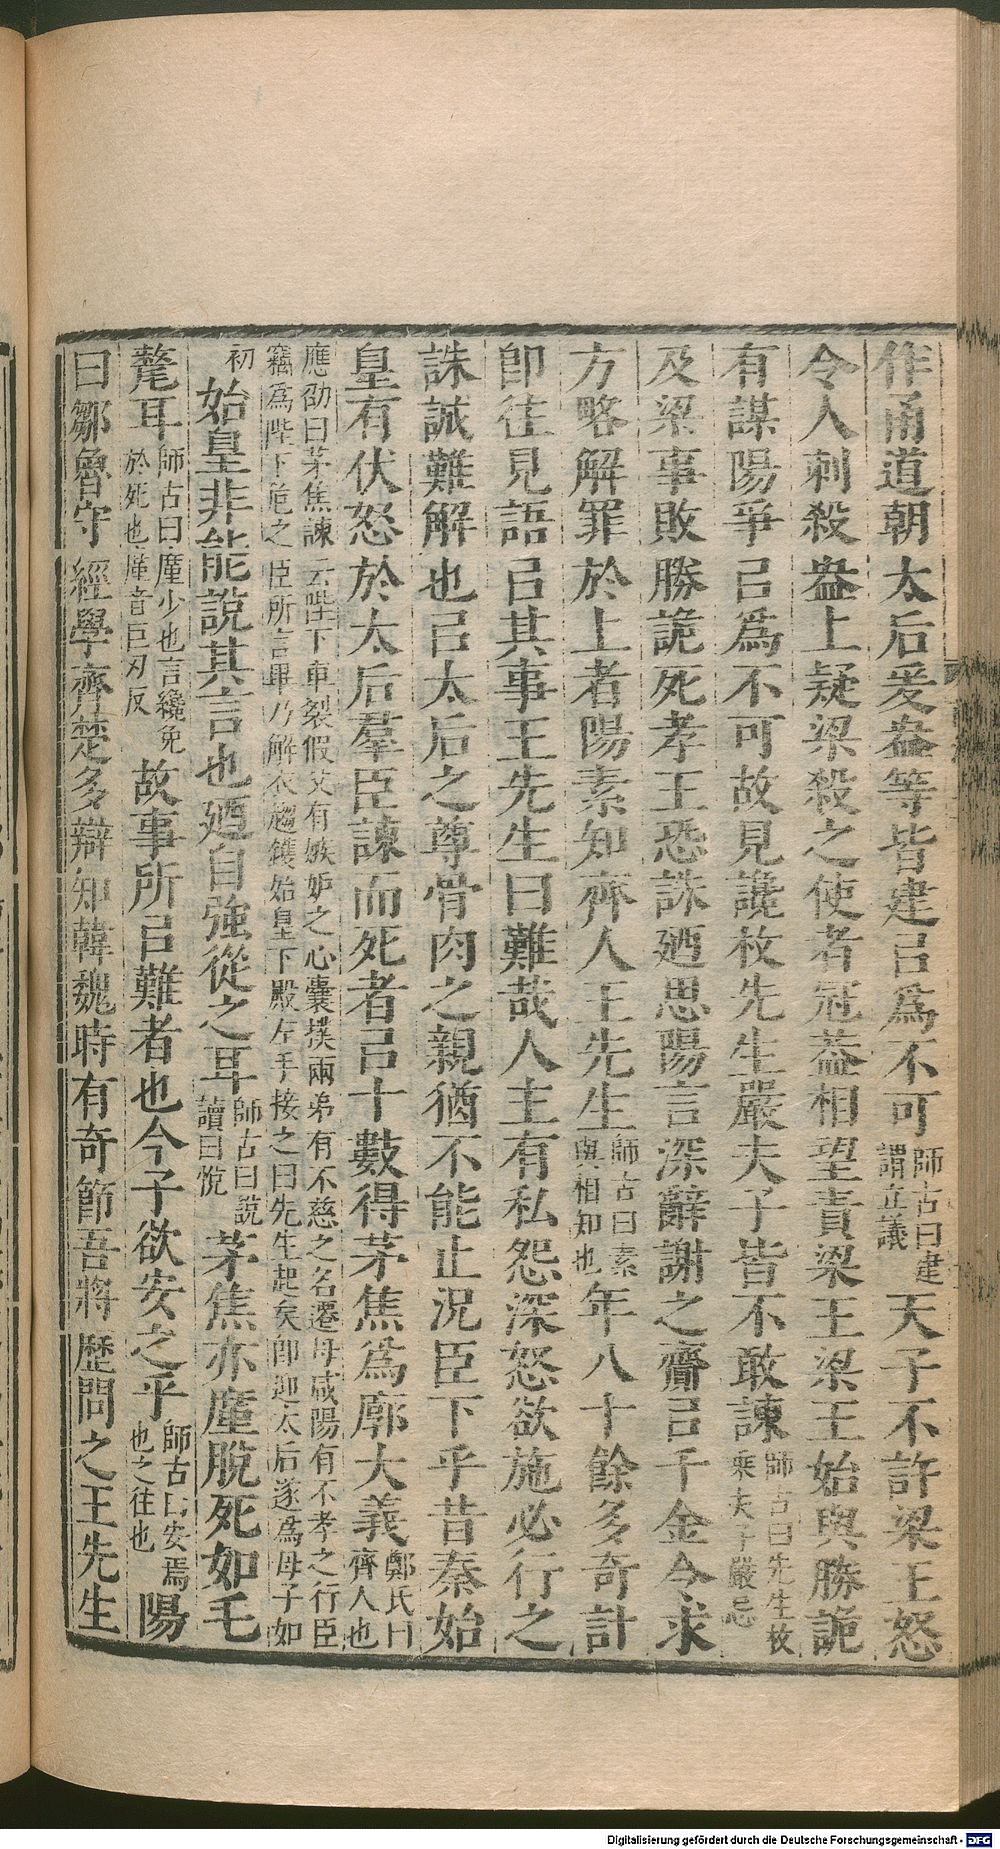 作甬道朝太后爰盎等皆建㠯爲不可師古曰建謂立議天子不許梁王怒
令人刺殺盎上疑梁殺之使者冠蓋相望責梁王梁王始與勝詭
有謀陽爭㠯爲不可故見讒枚先生嚴夫子皆不敢諫師古曰先生枚乘夫子嚴忌
及梁事敗勝詭死孝王恐誅廼思陽言深辭謝之齎㠯千金令求
方略解罪於上者陽素知齊人王先生師古曰素與相知也年八十餘多奇計
卽往見語㠯其事王先生曰難哉人主有私怨深怒欲施必行之
誅誠難解也㠯太后之尊骨肉之親猶不能止況臣下乎昔秦始
皇有伏怒於太后羣臣諫而死者㠯十數得茅焦爲廓大義鄭氏曰齊人也
應劭曰茅焦諫云陛下車裂假父有嫉妒之心囊撲兩弟有不慈之名遷母咸陽有不孝之行臣
竊爲陛下危之臣所言畢乃解衣趨鑊始皇下殿左手接之曰先生起矣卽迎太后遂爲母子如
初始皇非能說其言也廼自強從之耳師古曰說讀曰悅茅焦亦廑脫死如毛
氂耳師古曰廑少也言纔免於死也廑音巨刃反故事所㠯難者也今子欲安之乎師古曰安焉也之往也陽
曰鄒魯守經學齊楚多辯知韓魏時有奇節吾將歷問之王先生
Digitalisierung gefördert durch die Deutsche Forschungsgemeinschaft - DFG